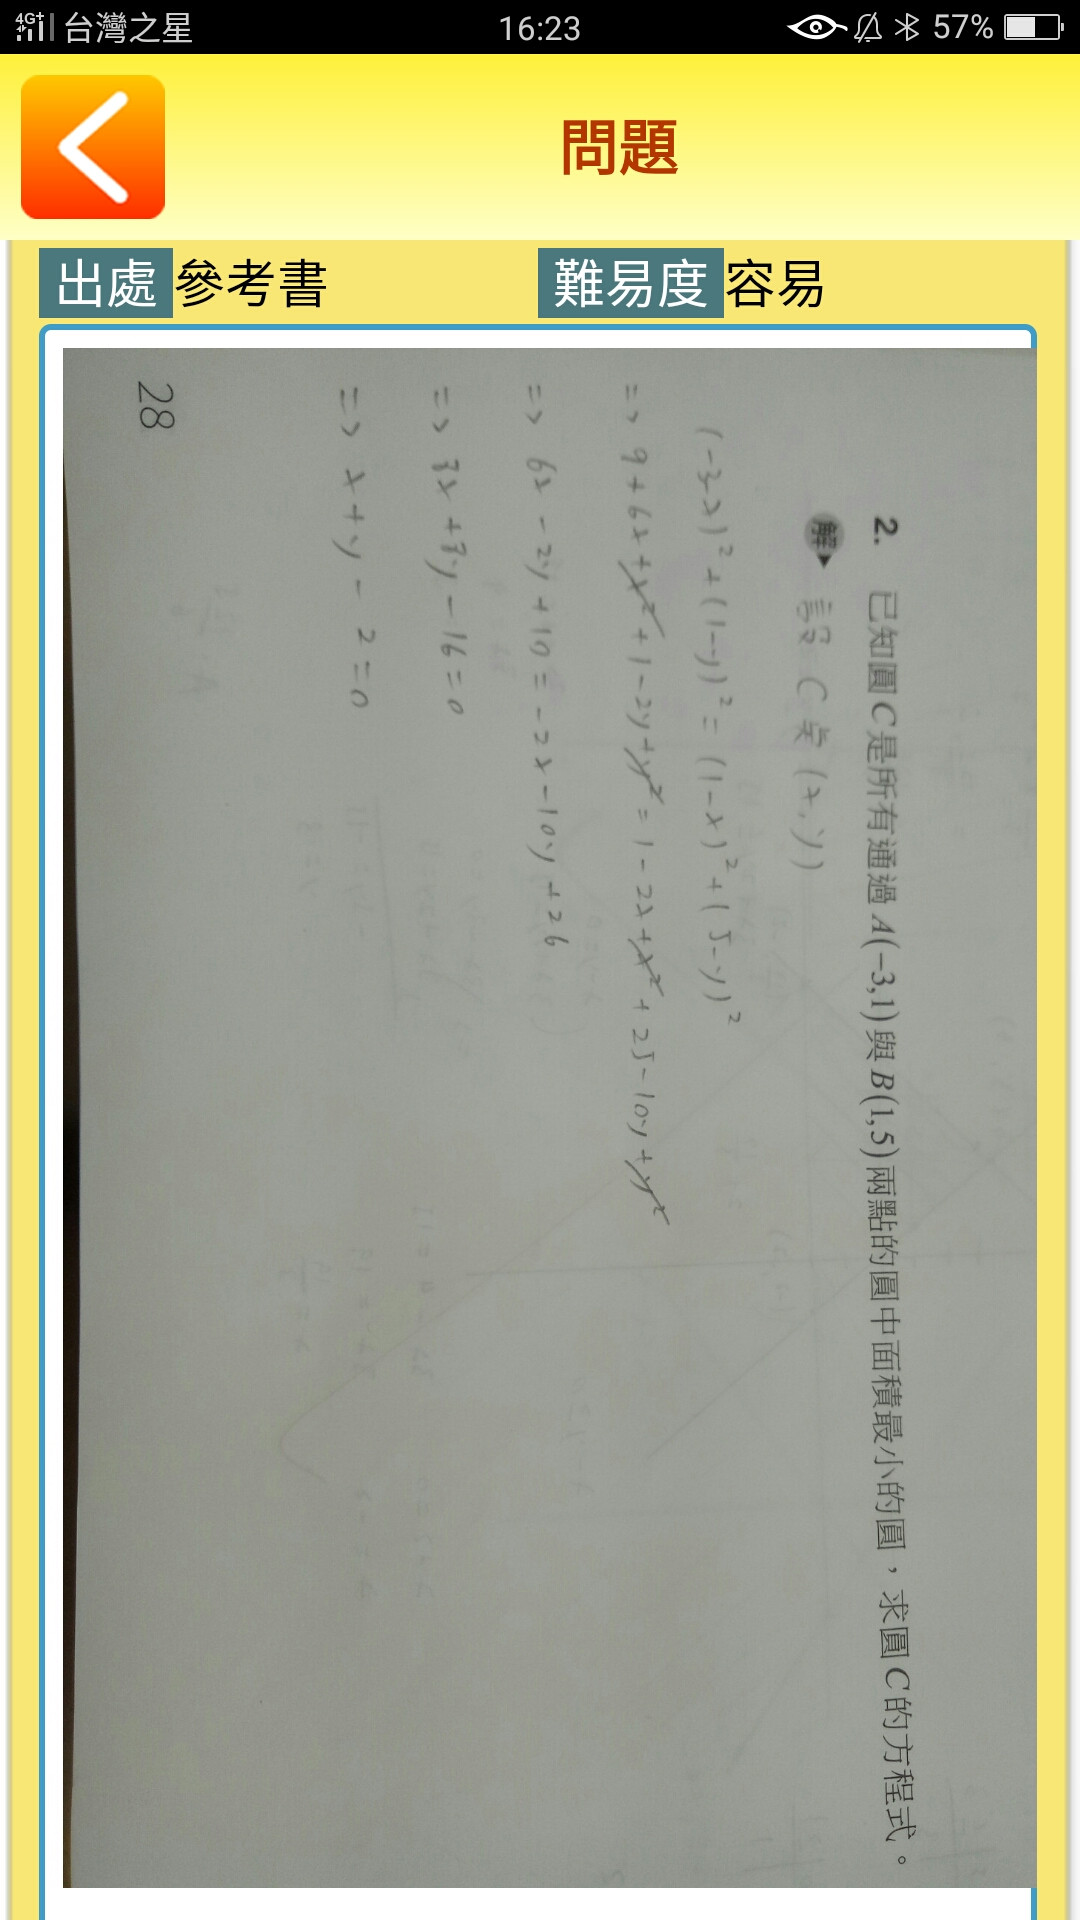 4G+ 台灣之星 16:23 57%
問題
出處 參考書 難易度 容易
2. 已知圓C是所有通過A(−3,1)與B(1,5)兩點的圓中面積最小的圓，求圓C的方程式。
解 設 C 為 (x, y)
(-3-x)² + (1-y)² = (1-x)² + (5-y)²
=> 9 + 6x + x² + 1 - 2y + y² = 1 - 2x + x² + 25 - 10y + y²
=> 6x - 2y + 10 = -2x - 10y + 26
=> 8x + 8y - 16 = 0
=> x + y - 2 = 0
28